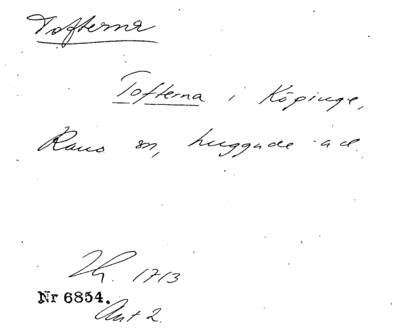 Tofterna
Tofterna i Köpinge,
Raus sn, huggade
1713
Nr 6854.
Ant 2.